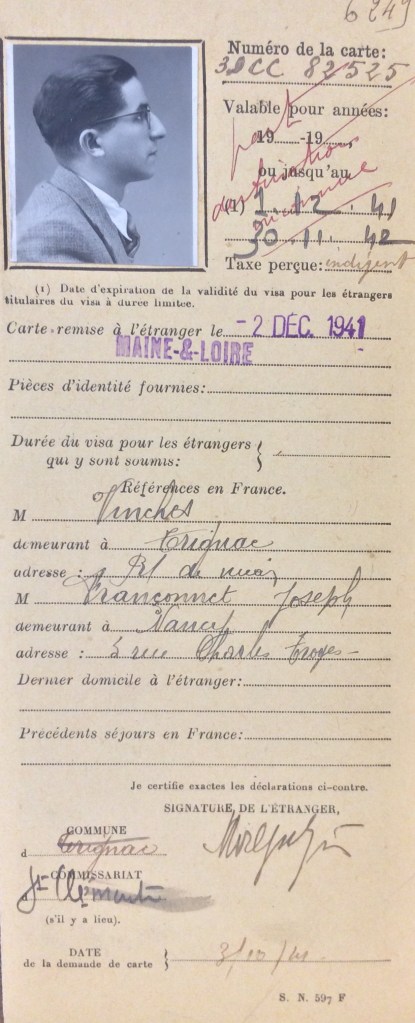 6249
Numéro de la carte:
3DCC 82525
Valable pour années:
19 -19
ou jusqu'au
(1) 1. 12. 41
30. 11. 42
Taxe perçue: indigent
(1) Date d'expiration de la validité du visa pour les étrangers
titulaires du visa à durée limitée.
Carte remise à l'étranger le - 2 DÉC. 1941
MAINE-&-LOIRE
Pièces d'identité fournies:
Durée du visa pour les étrangers
qui y sont soumis:
Références en France.
M
demeurant à Trignac
adresse :
M Françonnet Joseph
demeurant à Nancy
adresse : 5 rue Charles Troyes
Dernier domicile à l'étranger:
Précédents séjours en France:
Je certifie exactes les déclarations ci-contre.
SIGNATURE DE L'ÉTRANGER,
COMMUNE
d Trignac
COMMISSARIAT
d
(s'il y a lieu).
DATE
de la demande de carte 3/10/41
S. N. 597 F